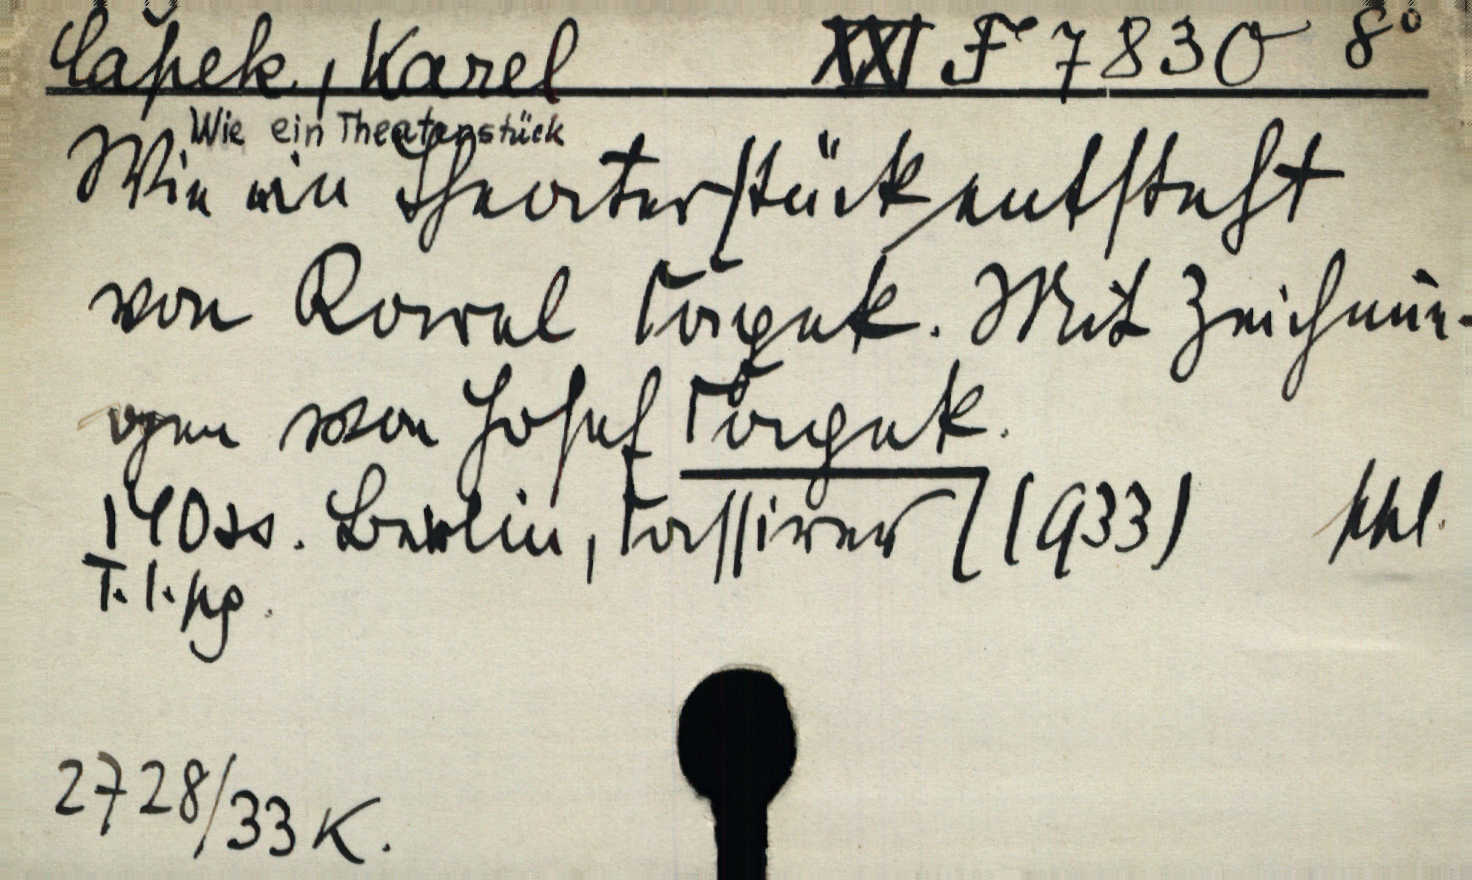 Čapek, Karel XXI F 7830 8°
Wie ein Theaterstück
Wie ein Theaterstück entsteht
von Karel Čapek. Mit Zeichnun-
gen von Josef Čapek.
140 ss. Berlin, Cassirer (1933)
T. 1.
2728/33 K.